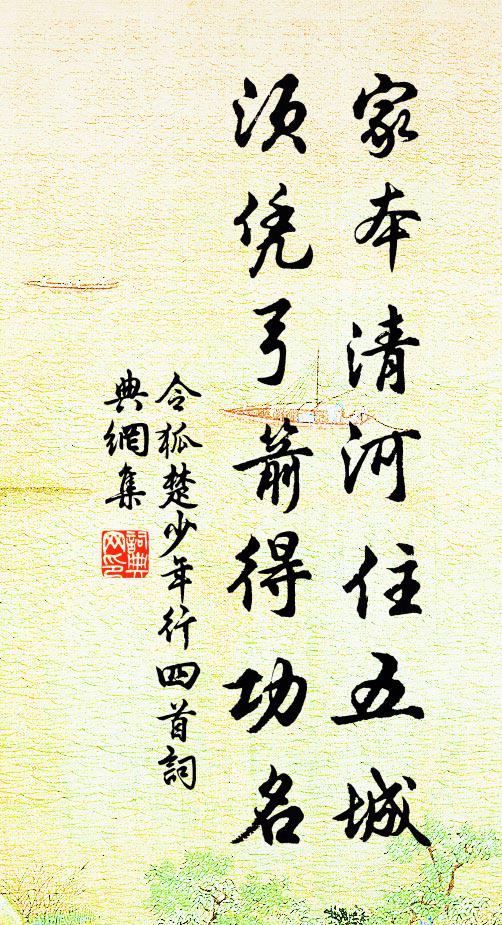 家本清河住五城
须凭弓箭得功名
令狐楚少年行四首詞
典網集
詞典
网印